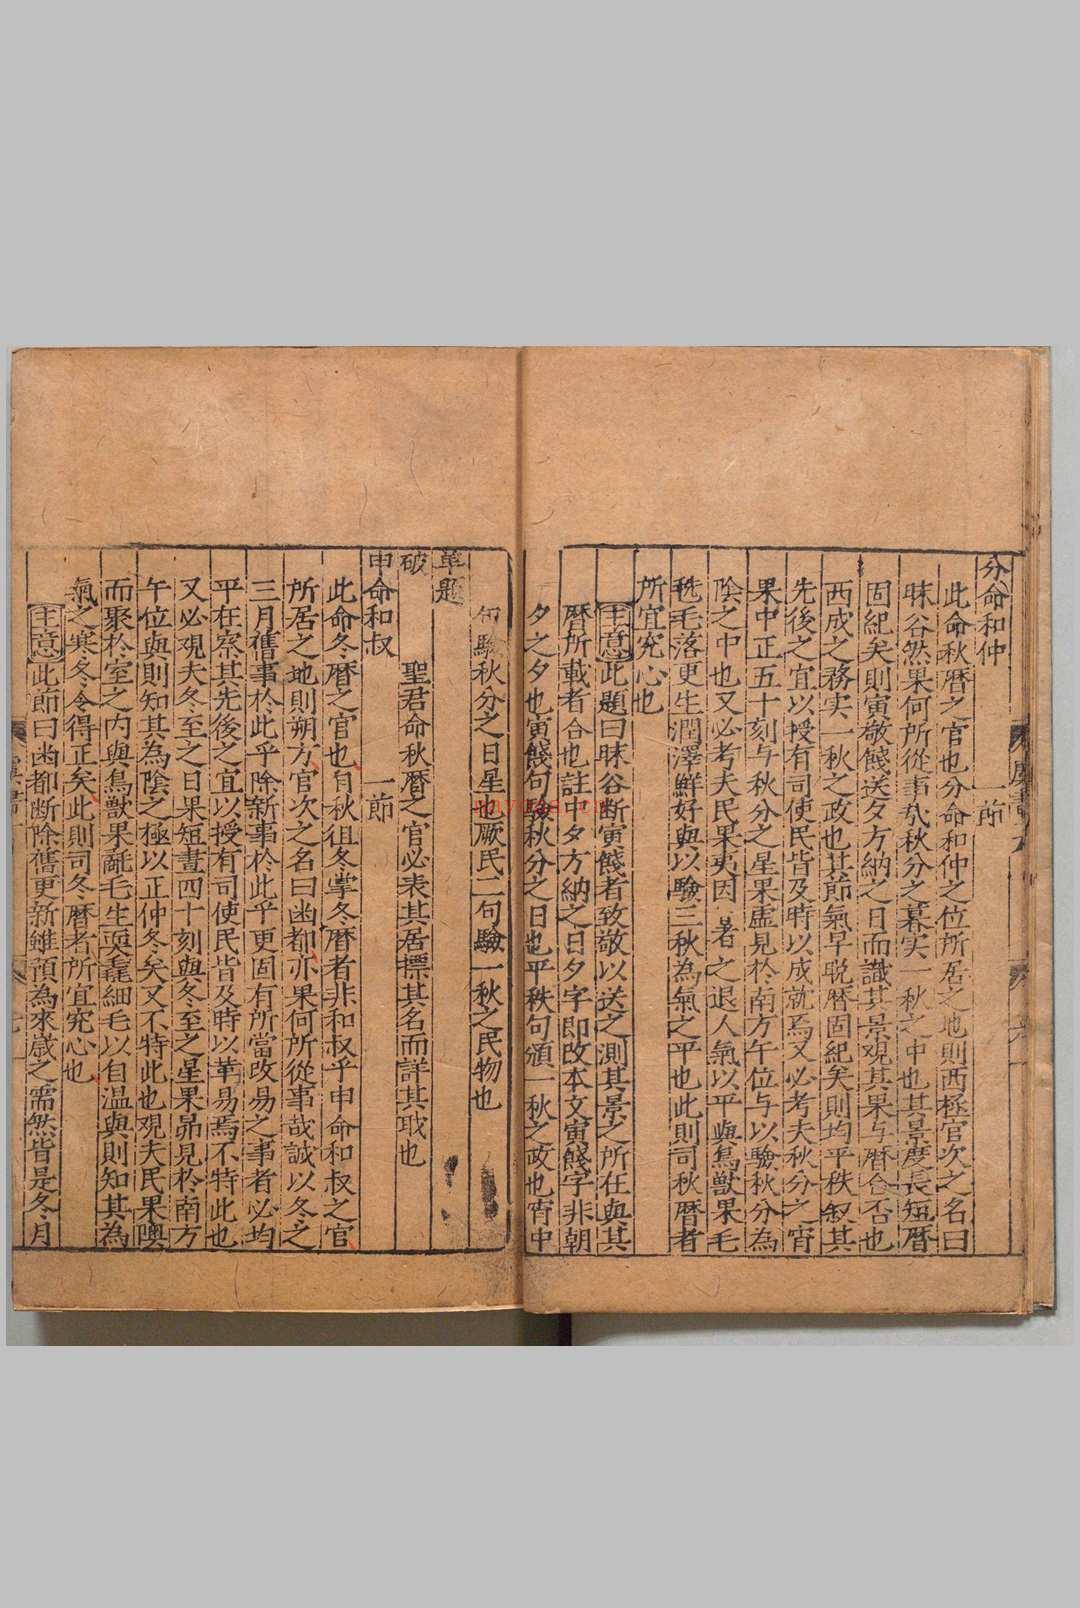 分命和仲 一節
此命秋曆之官也分命和仲之位所居之地則西極官次之名曰
昧谷然果何所從事哉秋分之暮実一秋之中也其景度長短曆
固紀矣則寅敬餞送夕方納之日而識其景观其果与曆合否也
西成之務实一秋之政也其節氣早晚曆固紀矣則均平秩叙其
先後之宜以授有司使民皆及時以成就焉又必考夫秋分之宵
果中正五十刻与秋分之星果虛見於南方午位与以驗秋分為
陰之中也又必考夫民果夷因暑之退人氣以平與鳥獸果毛
毨毛落更生潤澤鮮好與以驗三秋為氣之平也此則司秋曆者
所宜究心也
主意此題曰昧谷断寅餞者致敬以送之測其景之所在與其
曆所載者合也註中夕方納之日夕字即改本文寅餞字非朝
夕之夕也寅餞句驗秋分之日也平秩句頒一秋之政也宵中
句驗秋分之日星也厥民二句驗一秋之民物也
單題
破 聖君命秋曆之官必表其居標其名而詳其取也
申命和叔 一節
此命冬曆之官也自秋徂冬掌冬曆者非和叔乎申命和叔之官
所居之地則朔方官次之名曰幽都亦果何所從事哉誠以冬之
三月舊事於此乎除新事於此乎更固有所當改易之事者必均
平在察其先後之宜以授有司使民皆及時以革易焉不特此也
又必观夫冬至之日果短晝四十刻與冬至之星果昴見於南方
午位與則知其為陰之極以正仲冬矣又不特此也观夫民果隩
而聚於室之内與鳥獸果氄毛生耎毳細毛以自温與則知其為
氣之寒冬冬令得正矣此則司冬曆者所宜究心也
主意此節曰幽都断除舊更新雖預為來歲之需然皆是冬月